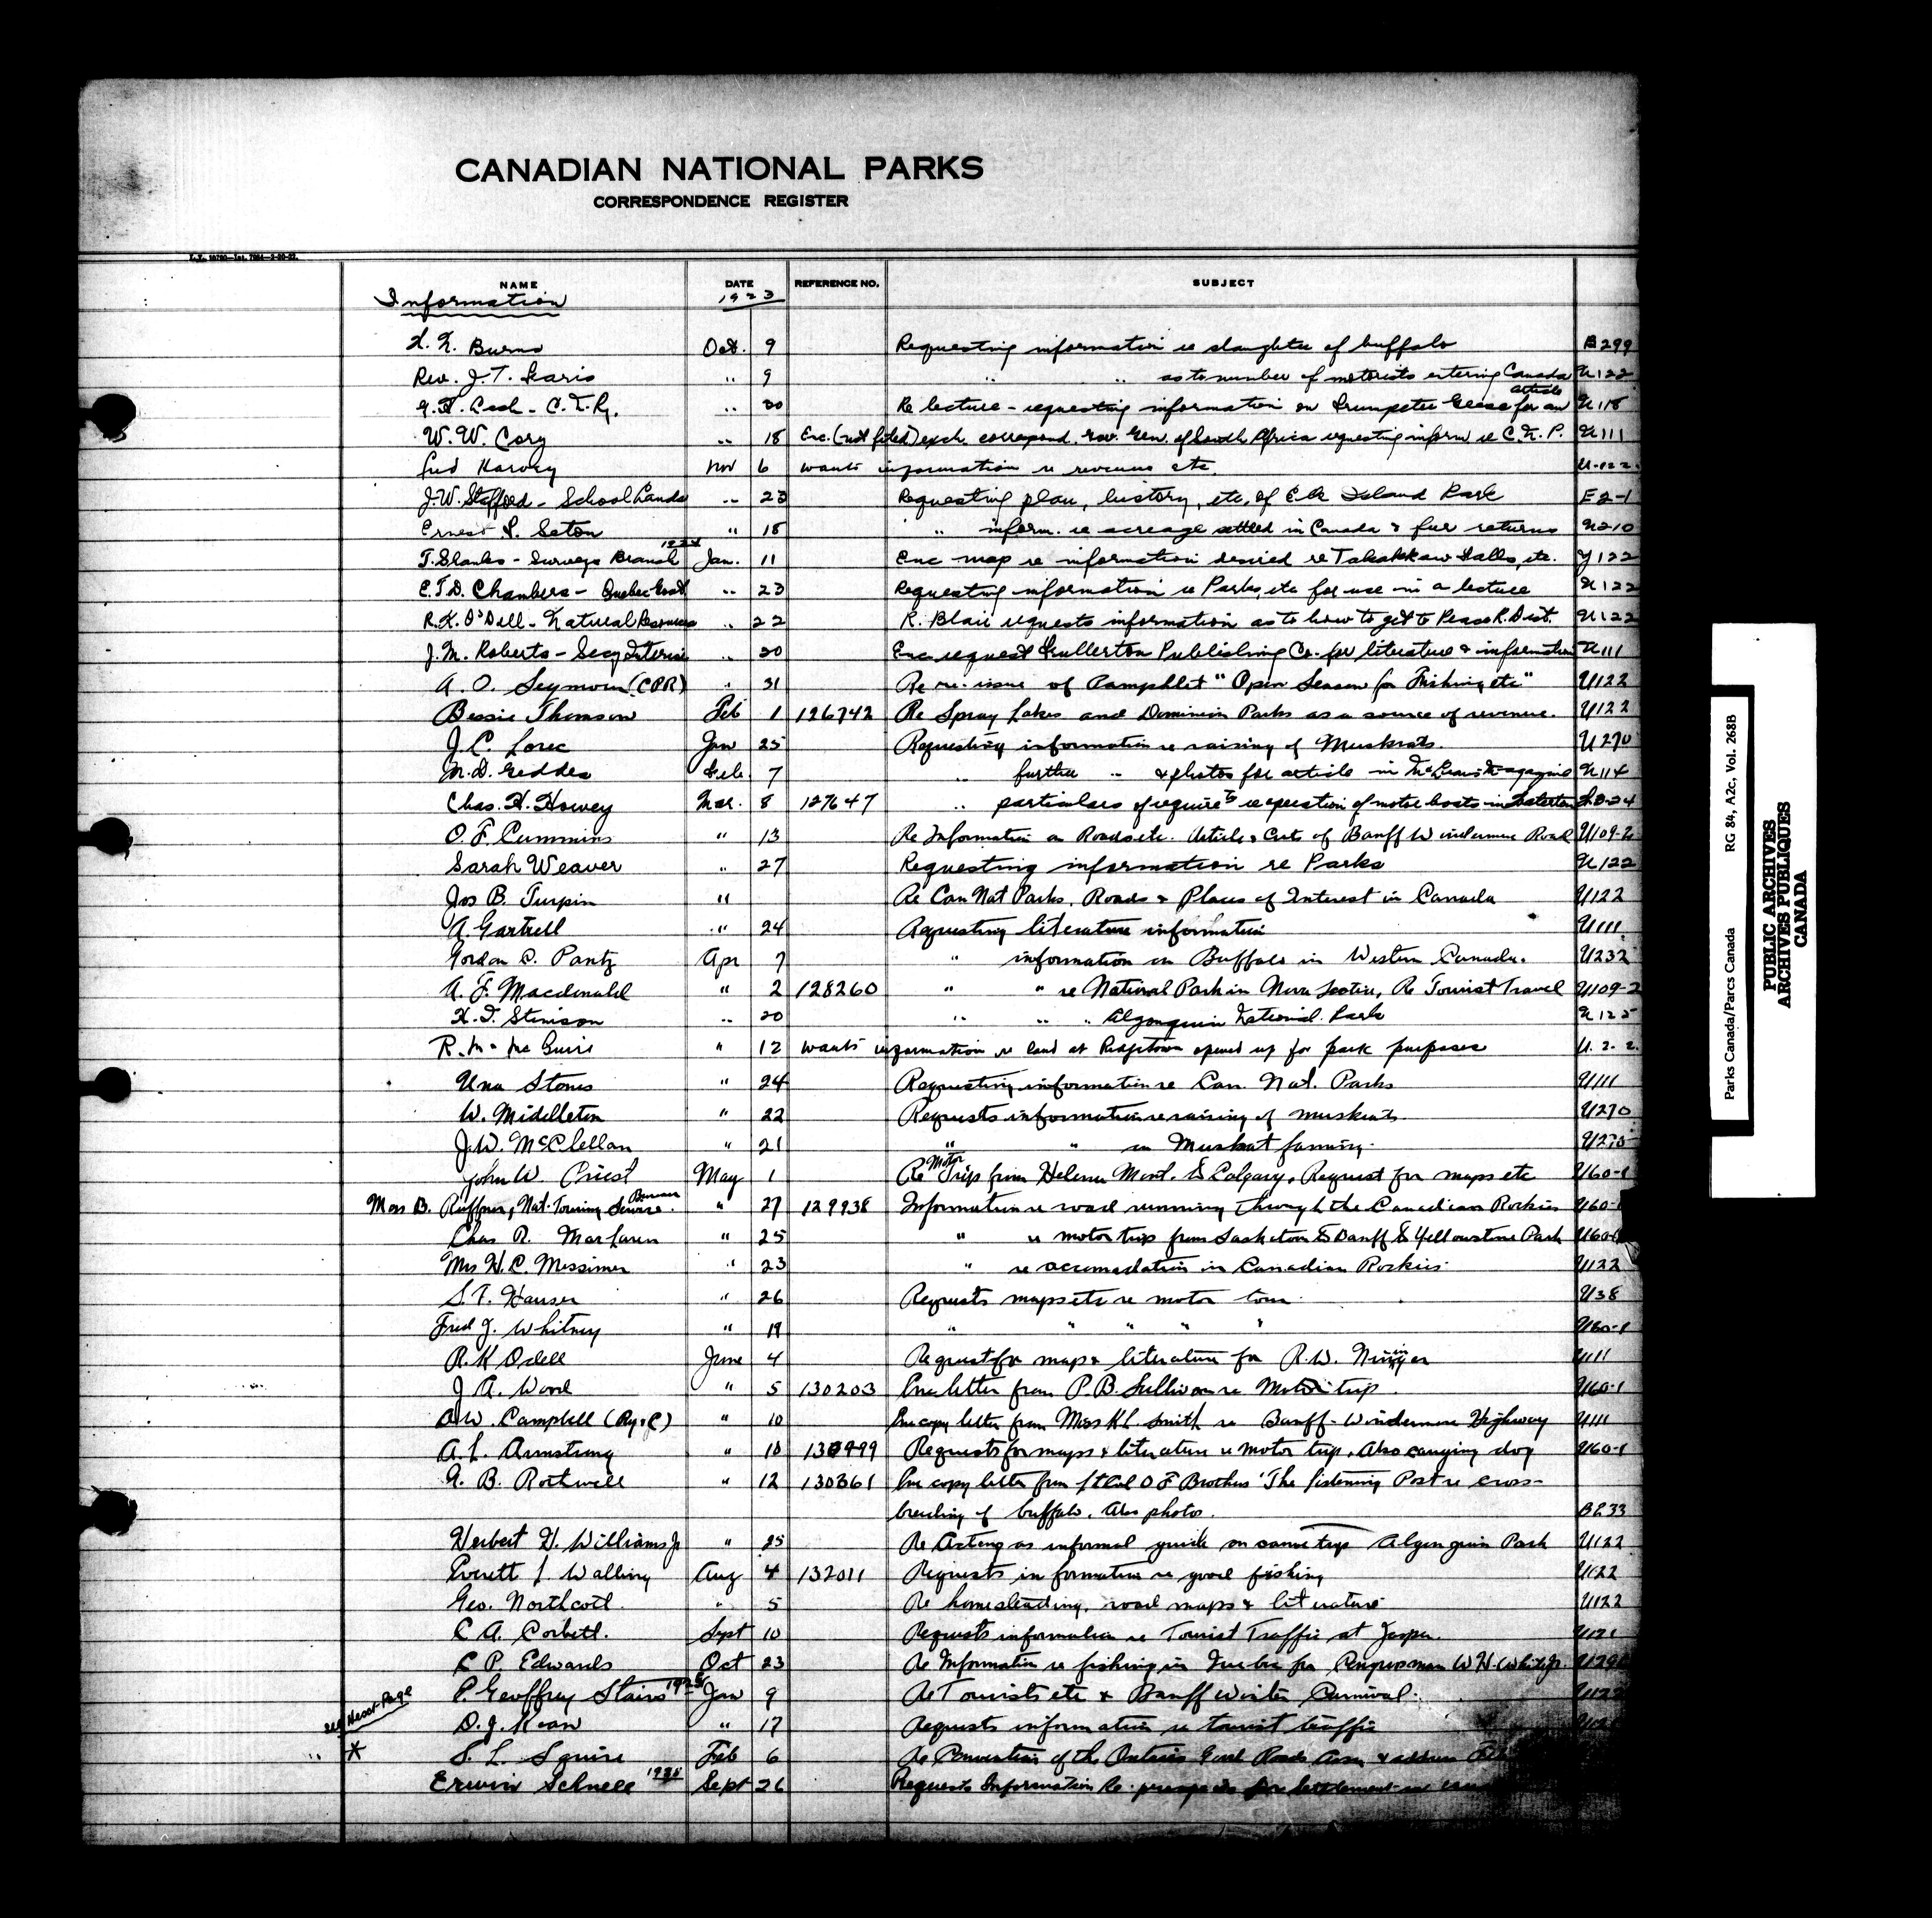 CANADIAN NATIONAL PARKS
CORRESPONDENCE REGISTER
NAME DATE REFERENCE NO. SUBJECT
Information 1923
Burns Oct. 9 Requesting information re slaughter of buffalo B299
Rev. J.T. " 9 " " as to number of motorists entering Canada U122
" 30 Re lecture - requesting information on Trumpeter Geese for an article U118
W.W. Cory " 18 Enc. (not filed) exch. correspond. Gov. Gen. of South Africa requesting inform re C.N.P. U111
Fred Harvey Nov 6 wants information re revenue etc. U.122.
J.W. Stafford - School Lands " 23 Requesting plan, history, etc. of Elk Island Park E2-1
Ernest T. Seton " 18 " inform. re acreage settled in Canada & fur returns U210
T. Shanks - Surveys Branch 1924 Jan. 11 Enc map re information desired re Takakkaw Falls, etc. Y122
E.T.D. Chambers - Quebec Govt " 23 Requesting information re Parks, etc for use in a lecture U122
R.K. O'Dell - Natural Resources " 22 R. Blair requests information as to how to get to Peace R. Dist. U122
J.M. Roberts - Secy Interior " 30 Enc request Fullerton Publishing Co. for literature & information U111
A.O. Seymour (CPR) " 31 Re re-issue of Pamphlet "Open Season for Fishing etc" U122
Bessie Thomson Feb 1 126742 Re Spray Lakes and Dominion Parks as a source of revenue. U122
J.C. Jan 25 Requesting information re raising of Muskrats. U270
M.D. Geddes Feb. 7 " further " & photos for article in McLean's Magazine U114
Chas. H. Howey Mar. 8 127647 " particulars of require'ts re operation of motor boats in Waterton
O.F. Cummins " 13 Re Information on Roads etc. Article & Cuts of Banff Windermere Road U109-2
Sarah Weaver " 27 Requesting information re Parks U122
Jos B. Turpin " Re Can Nat Parks, Roads & Places of Interest in Canada U122
A. Gartrell " 24 Requesting literature information U111
Gordon C. Pantz Apr 7 " information on Buffalo in Western Canada. U232
A.F. Macdonald " 2 128260 " " re National Park in Nova Scotia, Re Tourist Travel U109-2
Stimson " 20 " " " Algonquin National Park U125
R. Mc Guire " 12 wants information re land at Ridgetown opened up for park purposes U.2.2.
Una Stones " 24 Requesting information re Can. Nat. Parks U111
W. Middleton " 22 Requests information re raising of muskrats U270
J.W. McClellan " 21 " " on Muskrat farming. U270
John W. Priest May 1 Re Motor Trip from Helena Mont. to Calgary, Request for maps etc U60-1
Mors B. Ruffner, Nat. Touring Service Bureau " 27 129938 Information re road running through the Canadian Rockies U60-1
Chas R. MacLaren " 25 " re motor trip from Saskatoon to Banff & Yellowstone Park U60-1
Mrs H.C. Messimer " 23 " re accomodation in Canadian Rockies U122
S.T. Hauser " 26 Requests maps etc re motor tour U38
Fred J. Whitney " 19 " " " " " U60-1
R.K Odell June 4 Request for maps & literature for R.W. U111
J.A. Wood " 5 130203 Enc letter from P.B. Sullivan re Motor trip. U60-1
D.W. Campbell (Ry&C) " 10 Enc copy letter from Miss K.L. Smith re Banff-Windermere Highway U111
A.L. Armstrong " 10 Requests for maps & literature re motor trip. Also carrying dog U60-1
G.B. Rothwell " 12 130361 Enc copy letter from Lt Col O F Brothers "The Listening Post re cross-
breeding of buffalo. Also photos. B233
Herbert H. Williams Jr " 25 Re Acting as informal guide on canoe trips Algonquin Park U122
Everett L. Walling Aug 4 132011 Requests information re good fishing U122
Geo. Northcott " 5 Re homesteading, road maps & literature U122
C A. Corbett. Sept 10 Requests information re Tourist Traffic at Jasper. U121
C P. Edwards Oct 23 Re Information re fishing in Quebec for Congressman W.H. White Jr.
P. Geoffrey Stairs 1925 Jan 9 Re Tourists etc & Banff Winter Carnival. U122
See Next Page
D.J. Kean " 17 Requests information re tourist traffic
* S.L. Squire Feb 6 Re Convention of the Ontario Good Roads Assn. & address
Erwin Schnell Sept 26 Requests Information Re. prospects for Settlement
Parks Canada/Parcs Canada RG 84, A2c, Vol. 268B
PUBLIC ARCHIVES
ARCHIVES PUBLIQUES
CANADA